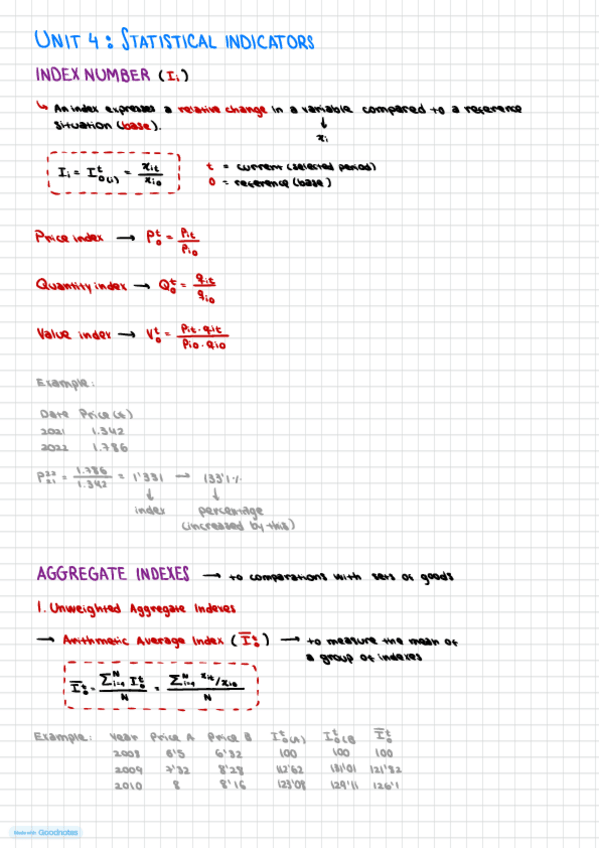 UNIT 4: STATISTICAL INDICATORS
INDEX NUMBER (Ii)
↳ An index expresses a relative change in a variable compared to a reference
situation (base).
↓
xi
Ii = I^t_0(i) = xit / xi0
t = current (selected period)
0 = reference (base)
Price index → P^t_0 = Pit / Pi0
Quantity index → Q^t_0 = qit / qi0
Value index → V^t_0 = Pit · qit / Pi0 · qi0
Example:
Date Price (€)
2021 1.342
2022 1.786
P^22_21 = 1.786 / 1.342 = 1'331 → 133'1%
↓ ↓
index percentage
(increased by this)
AGGREGATE INDEXES → to comparations with sets of goods
1. Unweighted Aggregate Indexes
→ Arithmetic Average Index (Ī^t_0) → to measure the mean of
a group of indexes
Ī^t_0 = Σ^N_i=1 I^t_0 / N = Σ^N_i=1 xit/xi0 / N
Example: Year Price A Price B I^t_0(A) I^t_0(B) Ī^t_0
2008 6'5 6'32 100 100 100
2009 7'32 8'28 112'62 131'01 121'82
2010 8 8'16 123'08 129'11 126'1
Made with Goodnotes